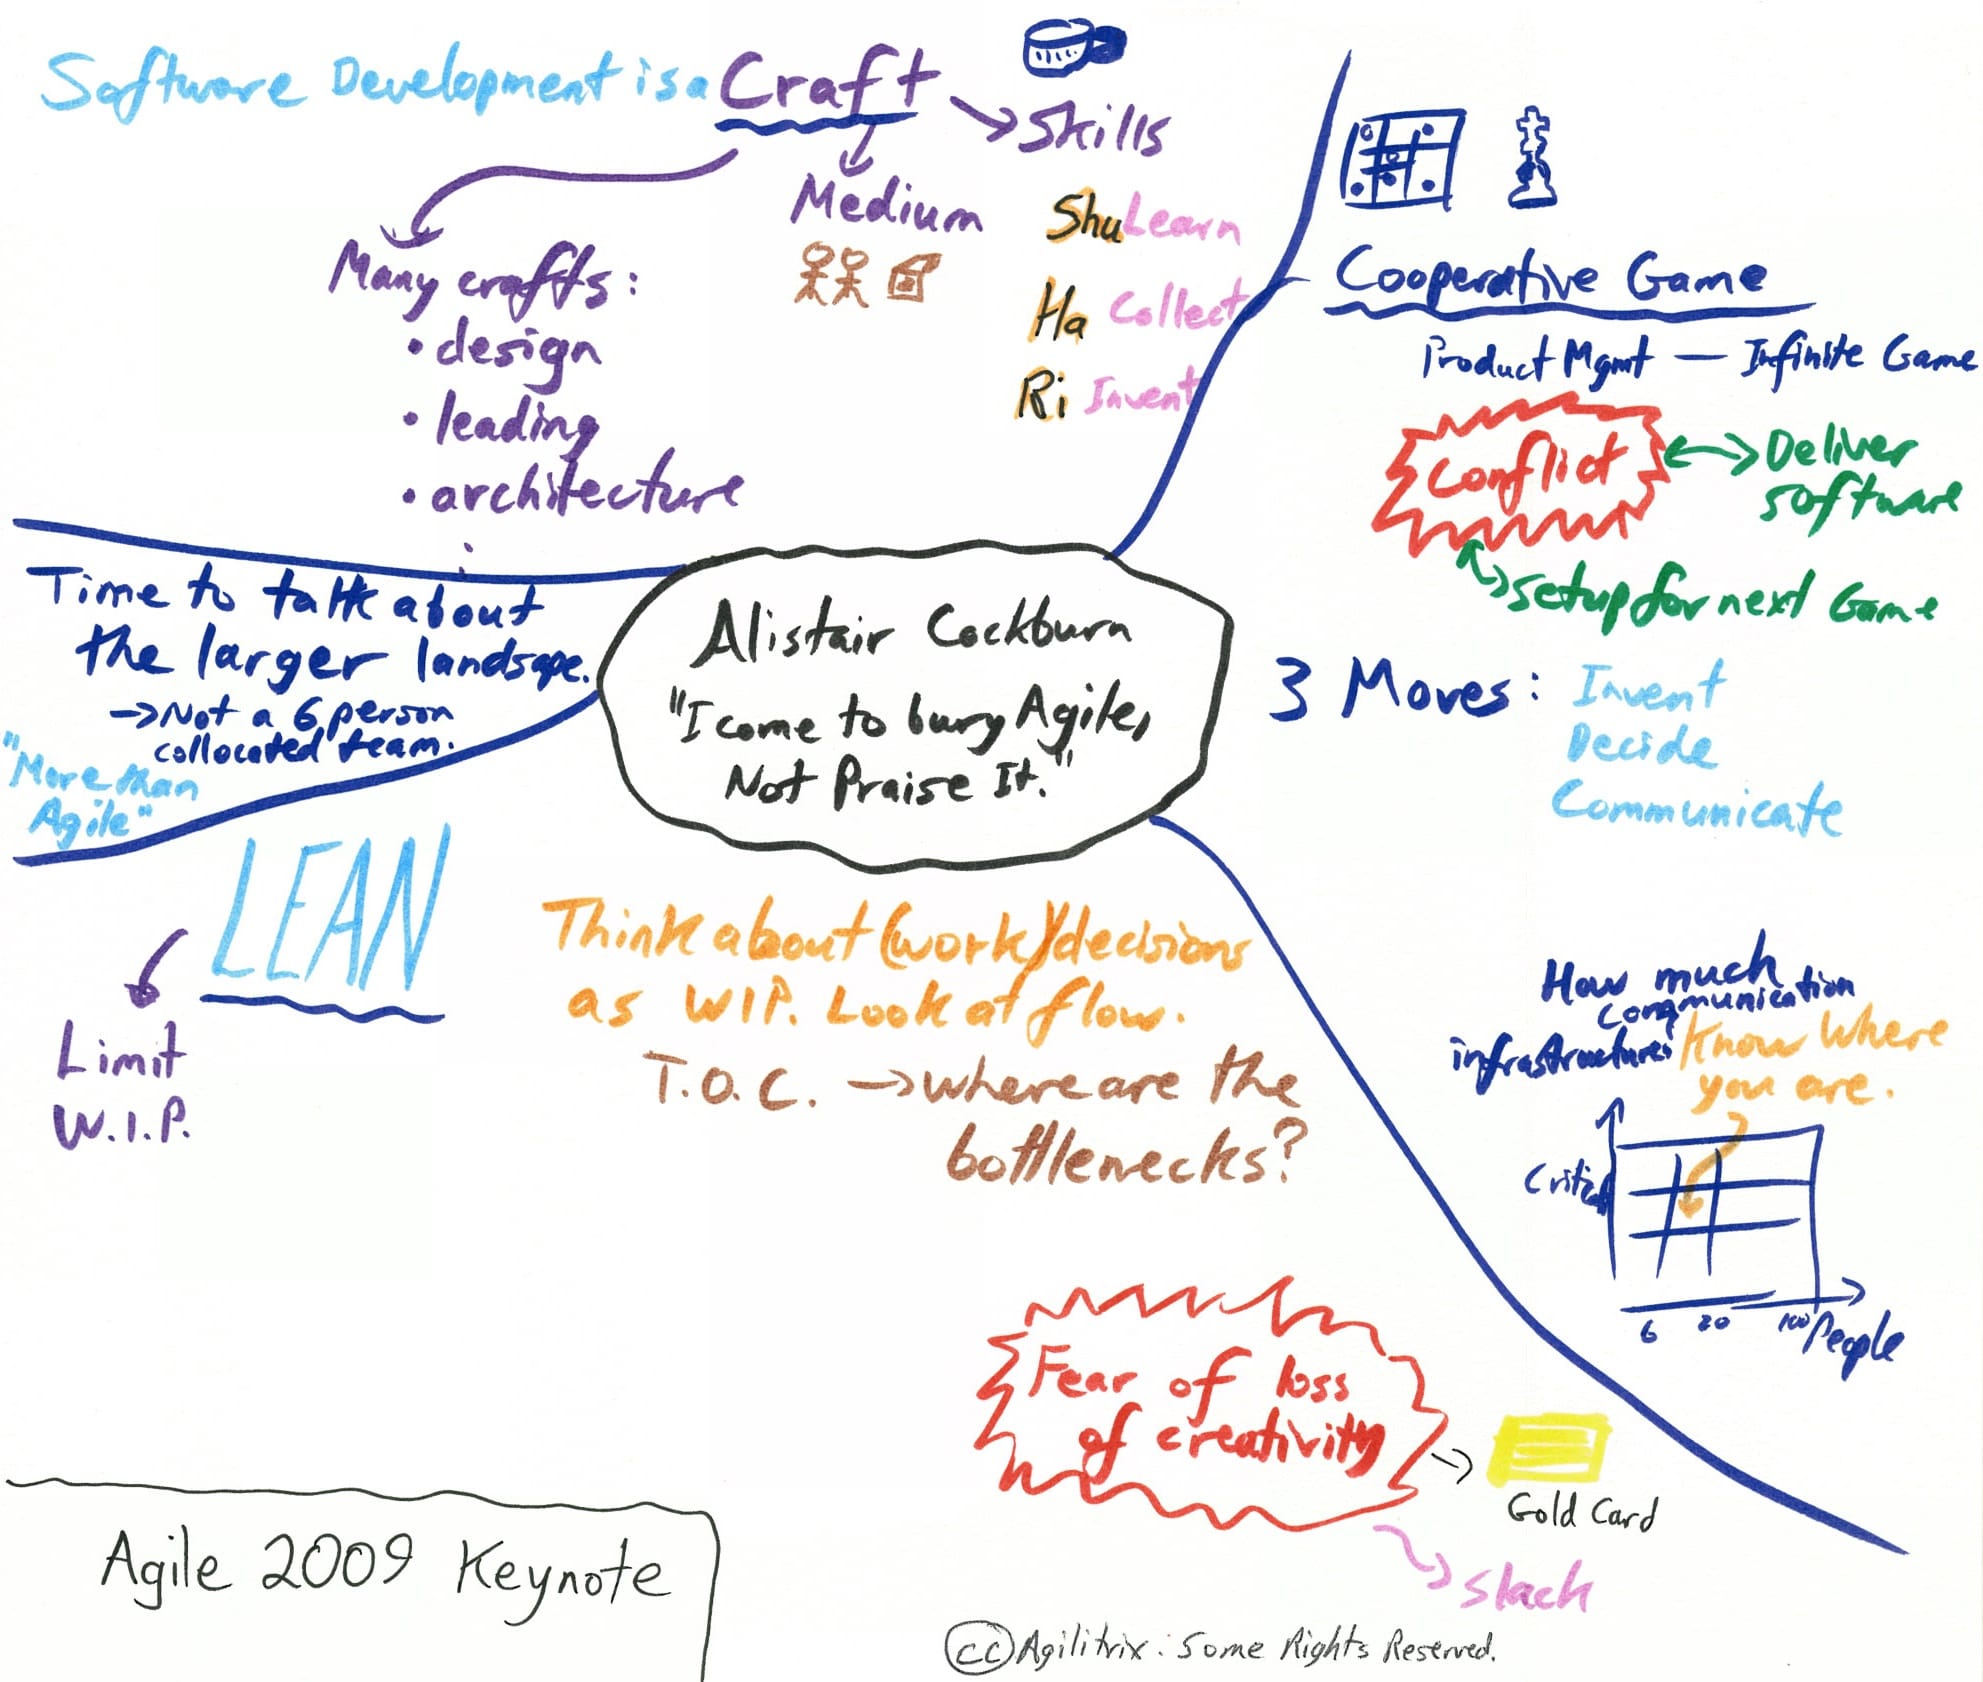 Software Development is a Craft
Skills
Medium
Shu Learn
Ha Collect
Ri Invent
Many crafts:
• design
• leading
• architecture
Cooperative Game
Product Mgmt — Infinite Game
Conflict
Deliver
software
setup for next Game
3 Moves: Invent
Decide
Communicate
How much
communication
infrastructure?
Know Where
you are.
Critical
6 20 100 People
Alistair Cockburn
"I come to bury Agile,
Not Praise It."
Time to talk about
the larger landscape.
→ Not a 6 person
collocated team.
"More than
Agile"
LEAN
Limit
W.I.P.
Think about (work) decisions
as WIP. Look at flow.
T.O.C. → where are the
bottlenecks?
Fear of loss
of creativity
Gold Card
slack
Agile 2009 Keynote
cc Agilitrix: Some Rights Reserved.